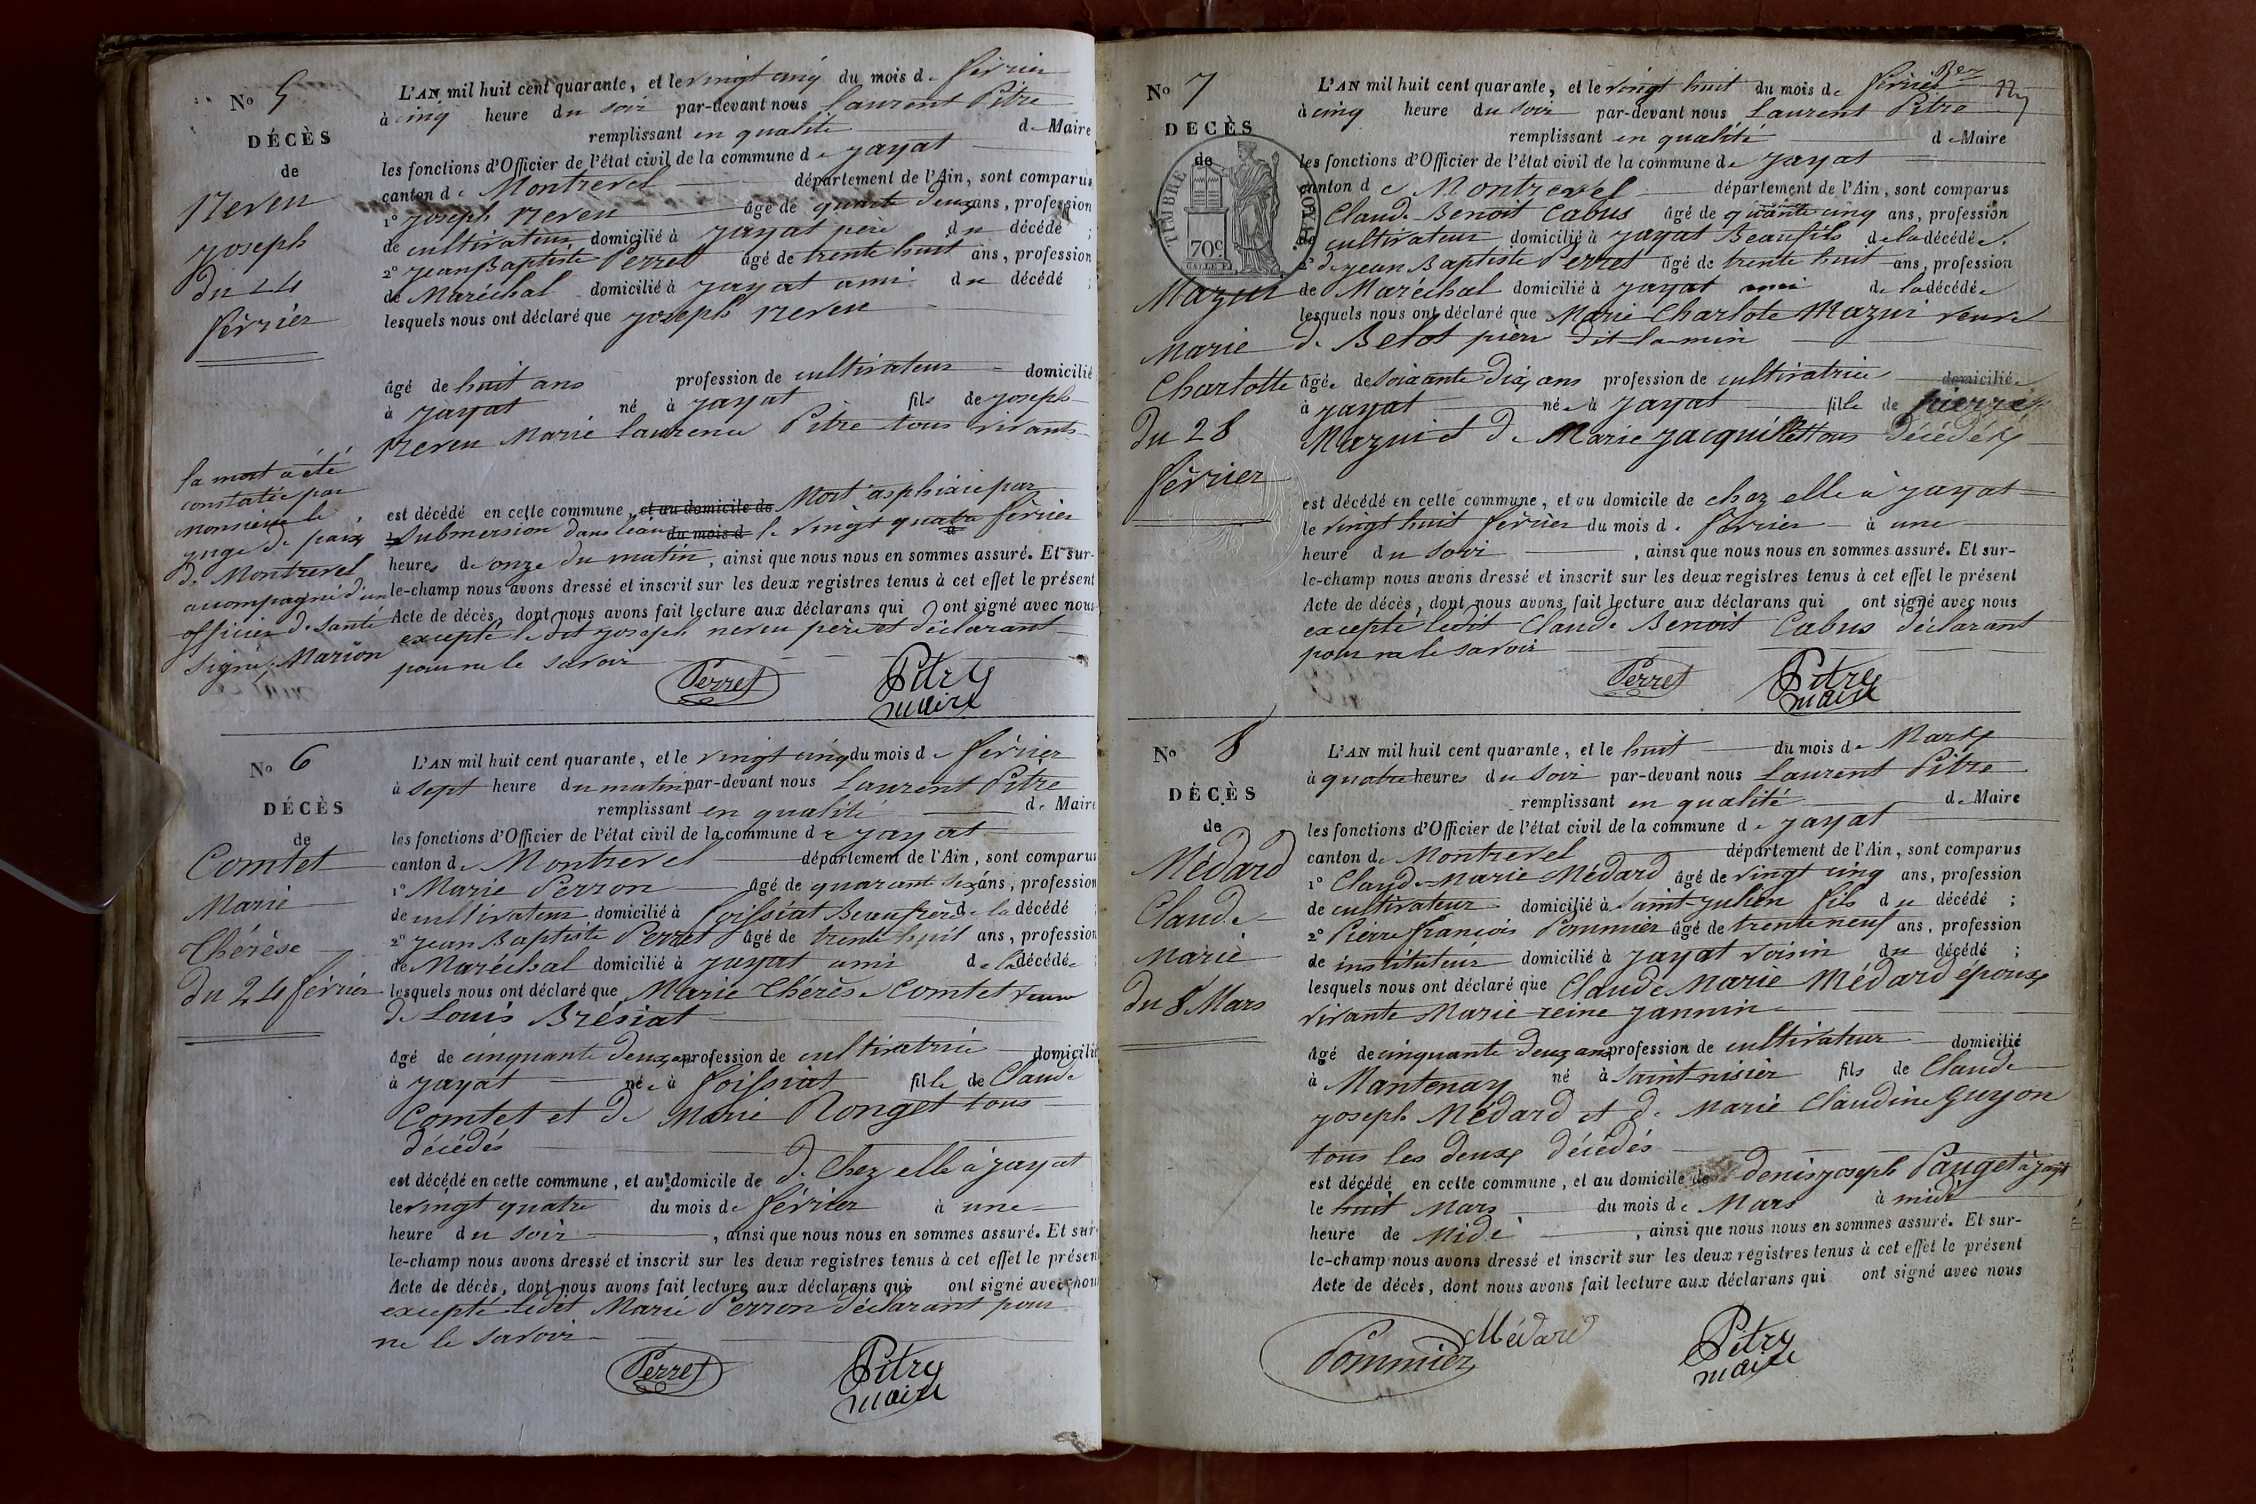 N° 5
DÉCÈS
de
Neveu
Joseph
du 24
février
L'AN mil huit cent quarante, et le vingt cinq du mois de février
à cinq heure du soir par-devant nous Laurent Pitre
remplissant en qualité de Maire
les fonctions d'Officier de l'état civil de la commune de Jayat
canton de Montrevel département de l'Ain, sont comparus
1° Joseph Neveu âgé de quarante deux ans, profession
de cultivateur domicilié à Jayat père du décédé ;
2° Jean Baptiste Perret âgé de trente huit ans, profession
de Maréchal domicilié à Jayat ami du décédé ;
lesquels nous ont déclaré que Joseph Neveu
âgé de huit ans profession de cultivateur domicilié
à Jayat né à Jayat fils de Joseph
Neveu Marie Laurence Pitre tous vivants
est décédé en cette commune, et au domicile de Mort asphixié par
Submersion dans l'eau du mois d le vingt quatre février
heures de onze du matin, ainsi que nous nous en sommes assuré. Et sur-
le-champ nous avons dressé et inscrit sur les deux registres tenus à cet effet le présent
Acte de décès, dont nous avons fait lecture aux déclarans qui ont signé avec nous
excepté le dit Joseph neveu père et déclarant
pour ne le savoir
Perret Pitre
maire
la mort a été
constatée par
Monsieur le
juge de paix
de Montrevel
accompagné d'un
officier de santé
signé, Marion
N° 6
DÉCÈS
de
Comtet
Marie
Thérèse
du 24 février
L'AN mil huit cent quarante, et le vingt cinq du mois de février
à sept heure du matin par-devant nous Laurent Pitre
remplissant en qualité de Maire
les fonctions d'Officier de l'état civil de la commune de Jayat
canton de Montrevel département de l'Ain, sont comparus
1° Marie Perron âgé de quarante six ans, profession
de cultivateur domicilié à foissiat Beaufrère de la décédé
2° Jean Baptiste Perret âgé de trente huit ans, profession
de Maréchal domicilié à Jayat ami de la décédée
lesquels nous ont déclaré que Marie Thérèse Comtet veuve
de Louis Bresiat
âgé de cinquante deux ans profession de cultivatrice domicilié
à Jayat née à foissiat fille de Claude
Comtet et de Marie Ronget tous
décédés
est décédé en cette commune, et au domicile de de chez elle à Jayat
le vingt quatre du mois de février à une
heure du soir, ainsi que nous nous en sommes assuré. Et sur-
le-champ nous avons dressé et inscrit sur les deux registres tenus à cet effet le présen
Acte de décès, dont nous avons fait lecture aux déclarans qui ont signé avec nou
excepté ledit Marie Perron déclarant pour
ne le savoir
Perret Pitre
maire
N° 7
DECÈS
de
TIMBRE ROYAL
70c.
Mazui
Marie
Charlotte
du 28
février
L'AN mil huit cent quarante, et le vingt huit du mois de février
à cinq heure du soir par-devant nous Laurent Pitre
remplissant en qualité de Maire
les fonctions d'Officier de l'état civil de la commune de Jayat
canton de Montrevel département de l'Ain, sont comparus
Claude Benoit Cabus âgé de quarante cinq ans, profession
de cultivateur domicilié à Jayat Beaufils de la décédée.
2° de Jean Baptiste Perret âgé de trente huit ans, profession
de Maréchal domicilié à Jayat ami de la décédée
lesquels nous ont déclaré que Marie Charlote Mazui veuve
de Belot pière dit lamin
âgée de soixante dix ans profession de cultivatrice domiciliée
à Jayat née à Jayat fille de pierre
Mazui et de Marie Jacquirettous décédés
est décédé en cette commune, et au domicile de chez elle à Jayat
le vingt huit février du mois de février à une
heure du soir, ainsi que nous nous en sommes assuré. Et sur-
le-champ nous avons dressé et inscrit sur les deux registres tenus à cet effet le présent
Acte de décès, dont nous avons fait lecture aux déclarans qui ont signé avec nous
excepté ledit Claude Benoit Cabus déclarant
pour ne le savoir
Perret Pitre
maire
N° 8
DÉCÈS
de
Médard
Claude
Marie
du 8 Mars
L'AN mil huit cent quarante, et le huit du mois de Mars
à quatre heures du soir par-devant nous Laurent Pitre
remplissant en qualité de Maire
les fonctions d'Officier de l'état civil de la commune de Jayat
canton de Montrevel département de l'Ain, sont comparus
1° Claude Marie Médard âgé de vingt cinq ans, profession
de cultivateur domicilié à Saint Julien fils du décédé ;
2° Pierre françois Pommier âgé de trente neuf ans, profession
de instituteur domicilié à Jayat voisin du décédé ;
lesquels nous ont déclaré que Claude Marie Médard époux
vivante Marie reine Jannin
âgé de cinquante deux ans profession de cultivateur domicilié
à Mantenay né à Saint nisier fils de Claude
Joseph Médard et de Marie Claudine Guyon
tous les deux décédés
est décédé en cette commune, et au domicile de denis joseph Pauget à Jayat
le huit Mars du mois de Mars à midi
heure de Midi, ainsi que nous nous en sommes assuré. Et sur-
le-champ nous avons dressé et inscrit sur les deux registres tenus à cet effet le présent
Acte de décès, dont nous avons fait lecture aux déclarans qui ont signé avec nous
Médard
Pommier Pitre
maire